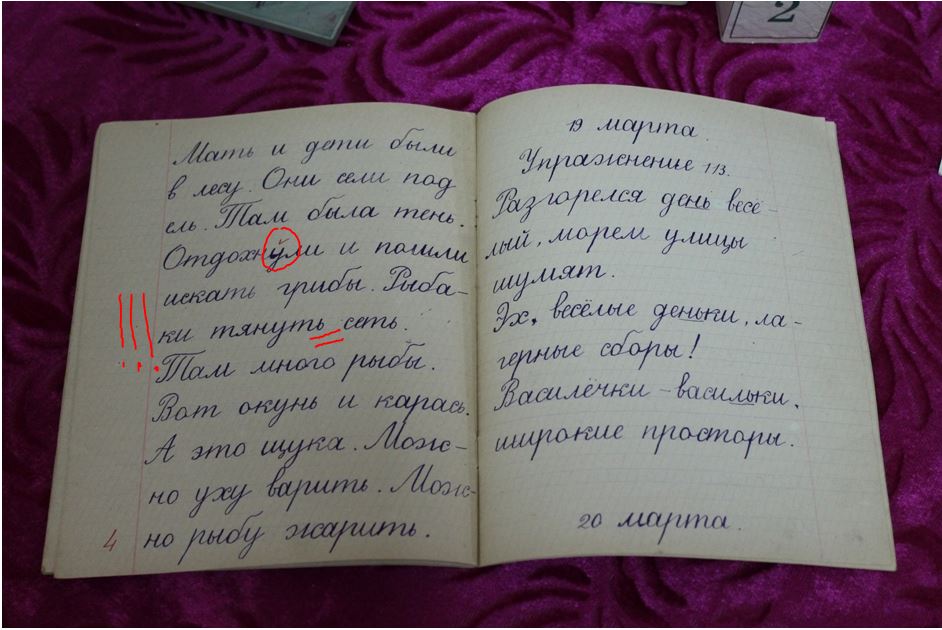 2
Мать и дети были
в лесу. Они сели под
ель. Там была тень.
Отдохнули и пошли
искать грибы. Рыба-
ки тянуть сеть.
Там много рыбы.
Вот окунь и карась.
А это щука. Мож-
но уху варить. Мож-
но рыбу жарить.
4
!!!
19 марта.
Упражненье 113.
Разгорелся день весё-
лый, морем улицы
шумят.
Эх, весёлые деньки, ла-
герные сборы!
Василёчки - васильки,
широкие просторы.
20 марта.